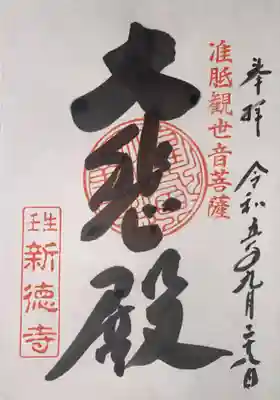 奉拝
令和五年九月二十九日
准胝観世音菩薩
大悲殿
壬生
新徳寺